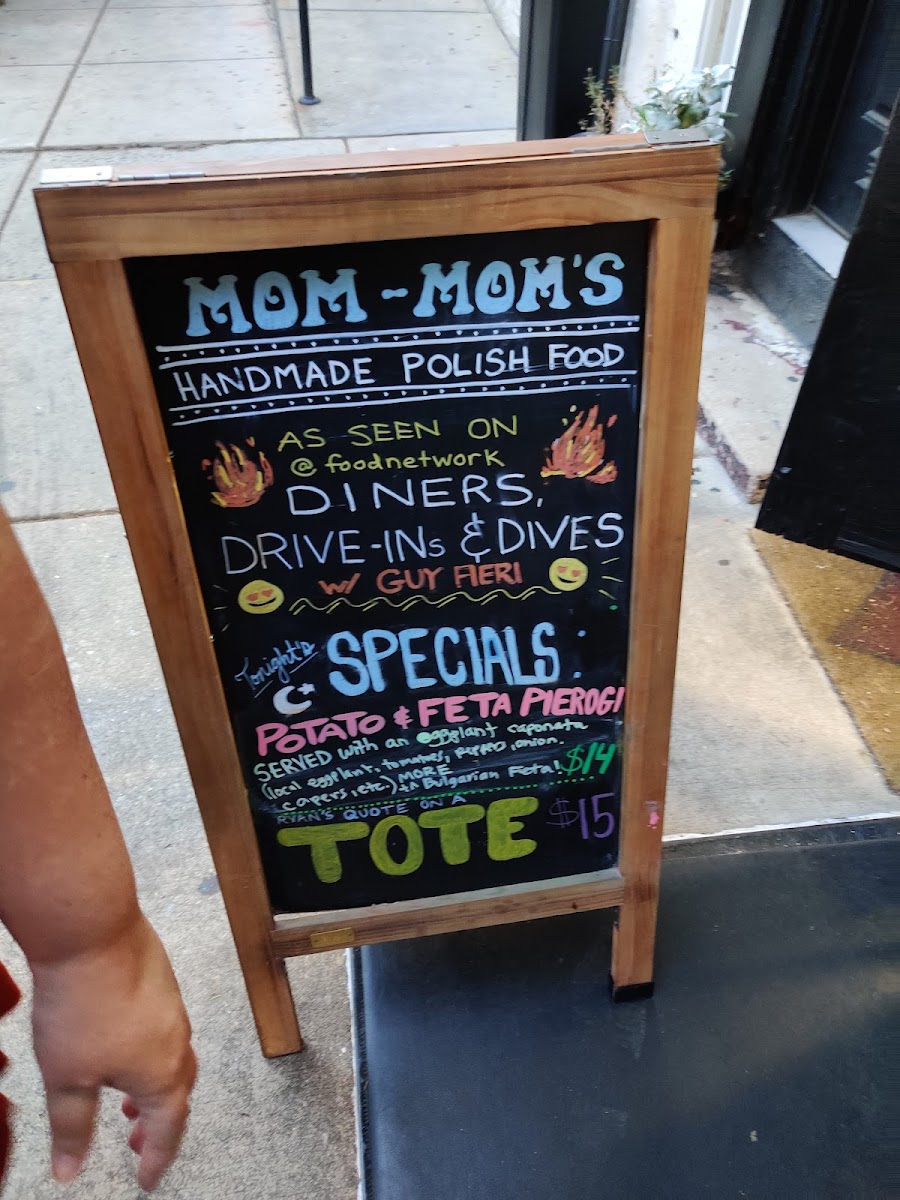 MOM-MOM'S
HANDMADE POLISH FOOD
AS SEEN ON
@foodnetwork
DINERS,
DRIVE-INs & DIVES
w/ GUY FIERI
Tonight's SPECIALS:
POTATO & FETA PIEROGI
SERVED with an eggplant caponata
(local eggplant, tomatoes, peppers, onion,
capers, etc.) MORE
Bulgarian Feta! $14
RYAN'S QUOTE ON A
TOTE $15